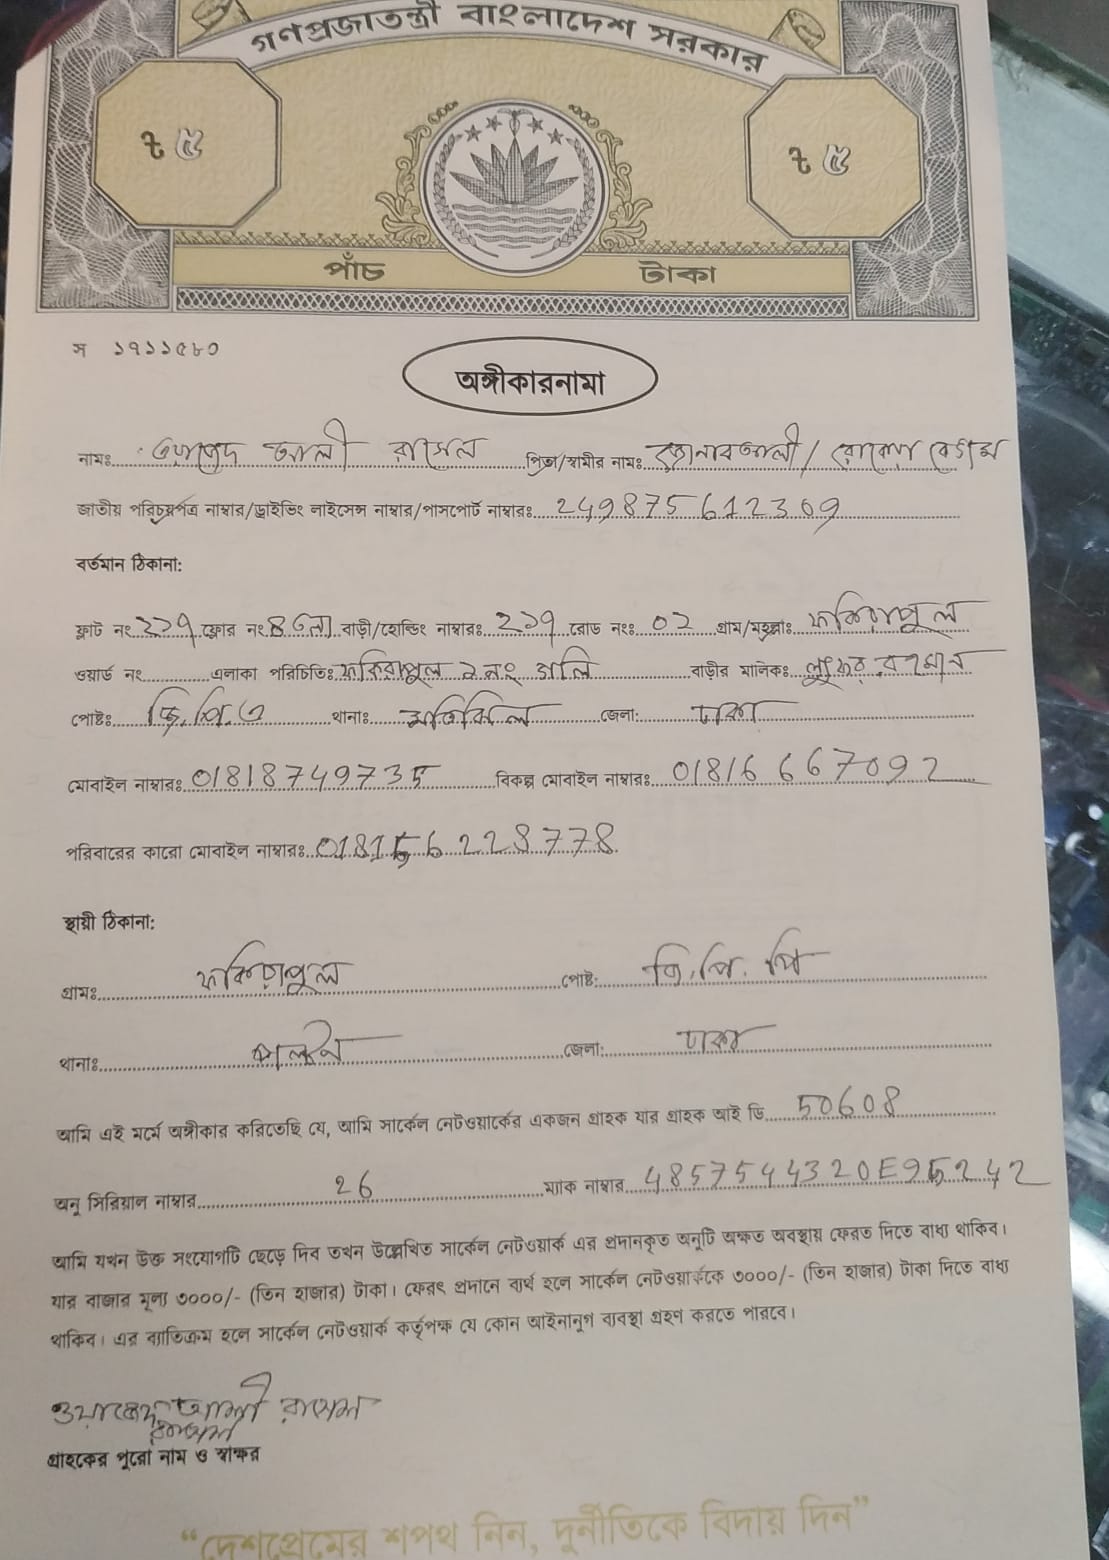 গণপ্রজাতন্ত্রী বাংলাদেশ সরকার
৳ ৫ ৳ ৫
পাঁচ টাকা
স ১৭১১৫৮০
অঙ্গীকারনামা
নামঃ আলী রাসেল পিতা/স্বামীর নামঃ
জাতীয় পরিচয়পত্র নাম্বার/ড্রাইভিং লাইসেন্স নাম্বার/পাসপোর্ট নাম্বারঃ 249875612309
বর্তমান ঠিকানা:
ফ্লাট নং ২১৭ ফ্লোর নং ৪ তলা বাড়ী/হোল্ডিং নাম্বারঃ ২১৭ রোড নংঃ ০২ গ্রাম/মহল্লাঃ ফকিরাপুল
ওয়ার্ড নং এলাকা পরিচিতিঃ ফকিরাপুল ২ নং গলি বাড়ীর মালিকঃ লুৎফর রহমান
পোষ্টঃ জি.পি.ও থানাঃ মতিঝিল জেলা: ঢাকা
মোবাইল নাম্বারঃ 01818749735 বিকল্প মোবাইল নাম্বারঃ 01816667092
পরিবারের কারো মোবাইল নাম্বারঃ
স্থায়ী ঠিকানা:
গ্রামঃ ফকিরাপুল পোষ্ট: জি.পি.
থানাঃ পল্টন জেলা: ঢাকা
আমি এই মর্মে অঙ্গীকার করিতেছি যে, আমি সার্কেল নেটওয়ার্কের একজন গ্রাহক যার গ্রাহক আই ডি 50608
অনু সিরিয়াল নাম্বার 26 ম্যাক নাম্বার 4857544320E95242
আমি যখন উক্ত সংযোগটি ছেড়ে দিব তখন উল্লেখিত সার্কেল নেটওয়ার্ক এর প্রদানকৃত অনুটি অক্ষত অবস্থায় ফেরত দিতে বাধ্য থাকিব।
যার বাজার মূল্য ৩০০০/- (তিন হাজার) টাকা। ফেরৎ প্রদানে ব্যর্থ হলে সার্কেল নেটওয়ার্ককে ৩০০০/- (তিন হাজার) টাকা দিতে বাধ্য
থাকিব। এর ব্যতিক্রম হলে সার্কেল নেটওয়ার্ক কর্তৃপক্ষ যে কোন আইনানুগ ব্যবস্থা গ্রহণ করতে পারবে।
আলী রাসেল
রাসেল
গ্রাহকের পুরো নাম ও স্বাক্ষর
“দেশপ্রেমের শপথ নিন, দুর্নীতিকে বিদায় দিন”